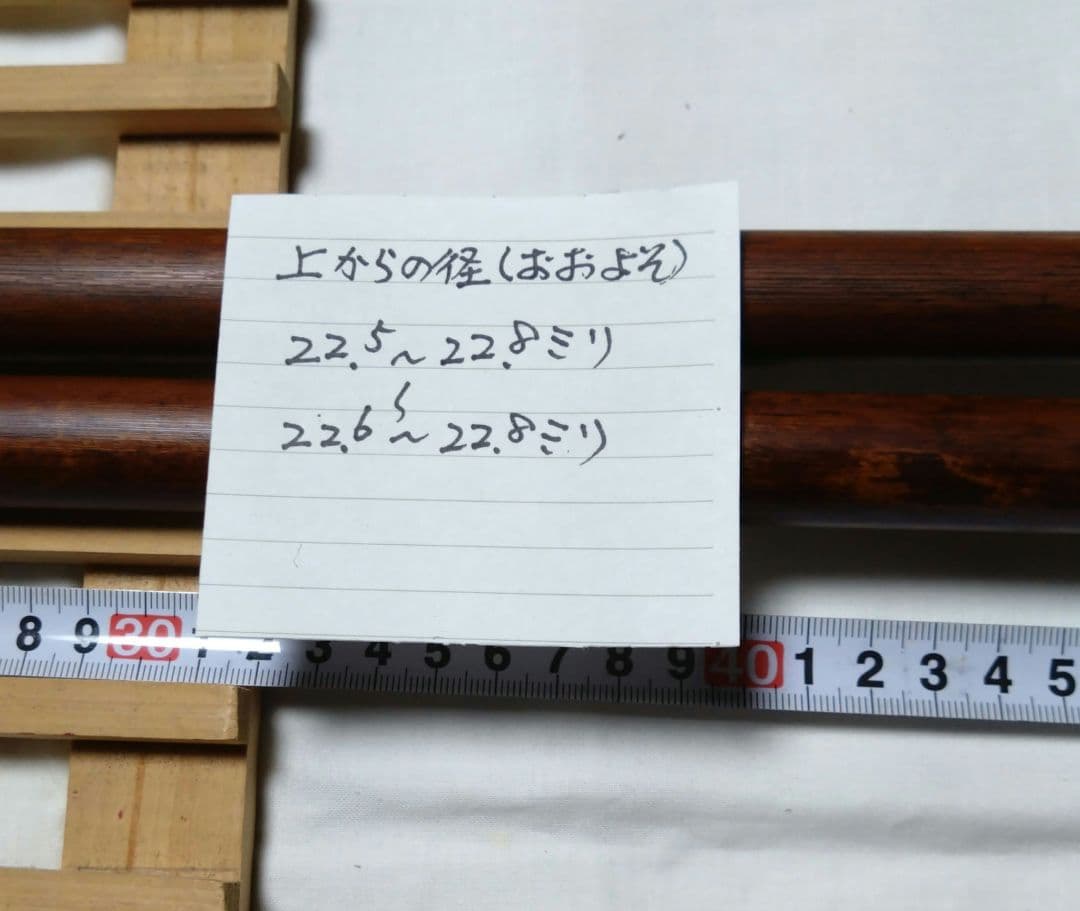 上からの径(おおよそ)
22.5~22.8ミリ
22.65~22.8ミリ
8 9 30 1 2 3 4 5 6 7 8 9 40 1 2 3 4 5